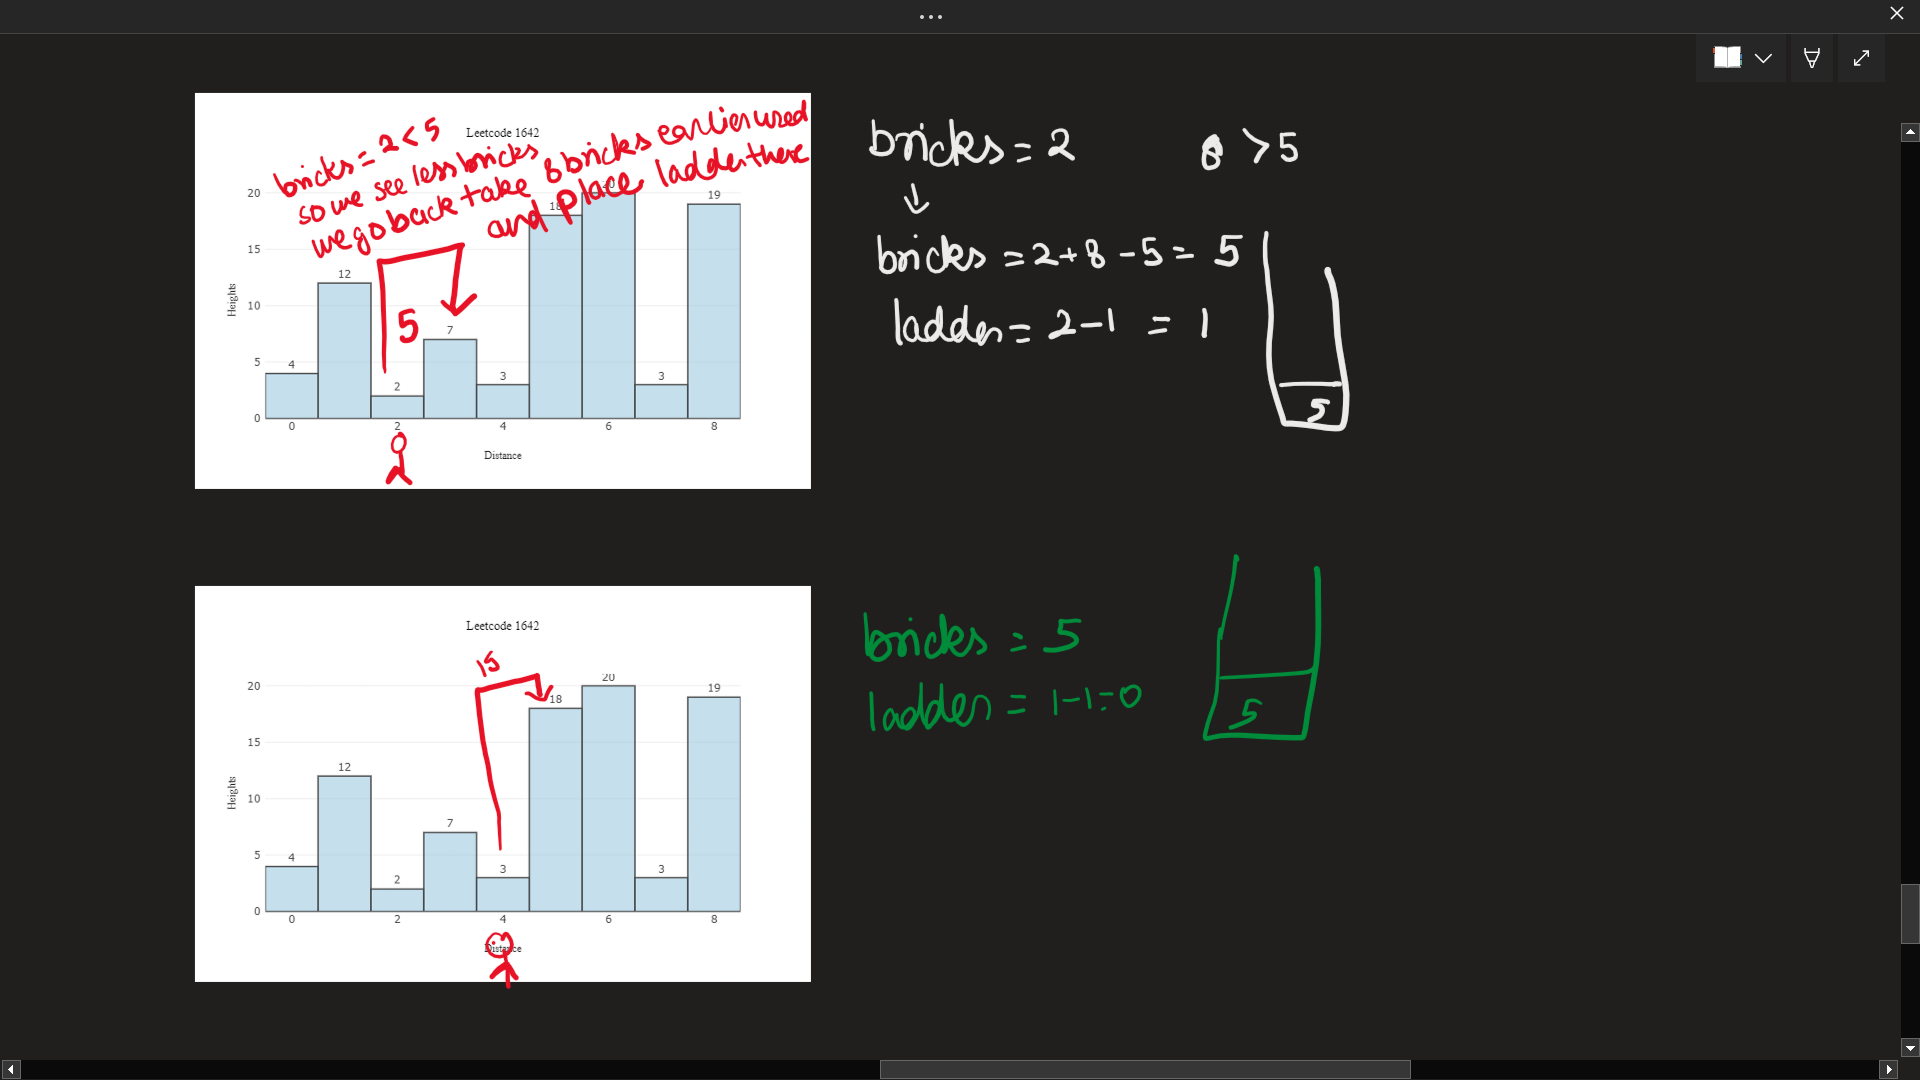 Leetcode 1642
bricks = 2 < 5
so we see less bricks
we go back take 8 bricks earlier used
and place ladder there
20
15
10
5
0
4
12
2
7
3
18
20
3
19
5
0
2
4
6
8
Heights
Distance
bricks = 2
8 > 5
↓
bricks = 2+8-5 = 5
ladder = 2-1 = 1
5
Leetcode 1642
15
20
15
10
5
0
4
12
2
7
3
18
20
3
19
0
2
4
6
8
Heights
Distance
bricks = 5
ladder = 1-1=0
5